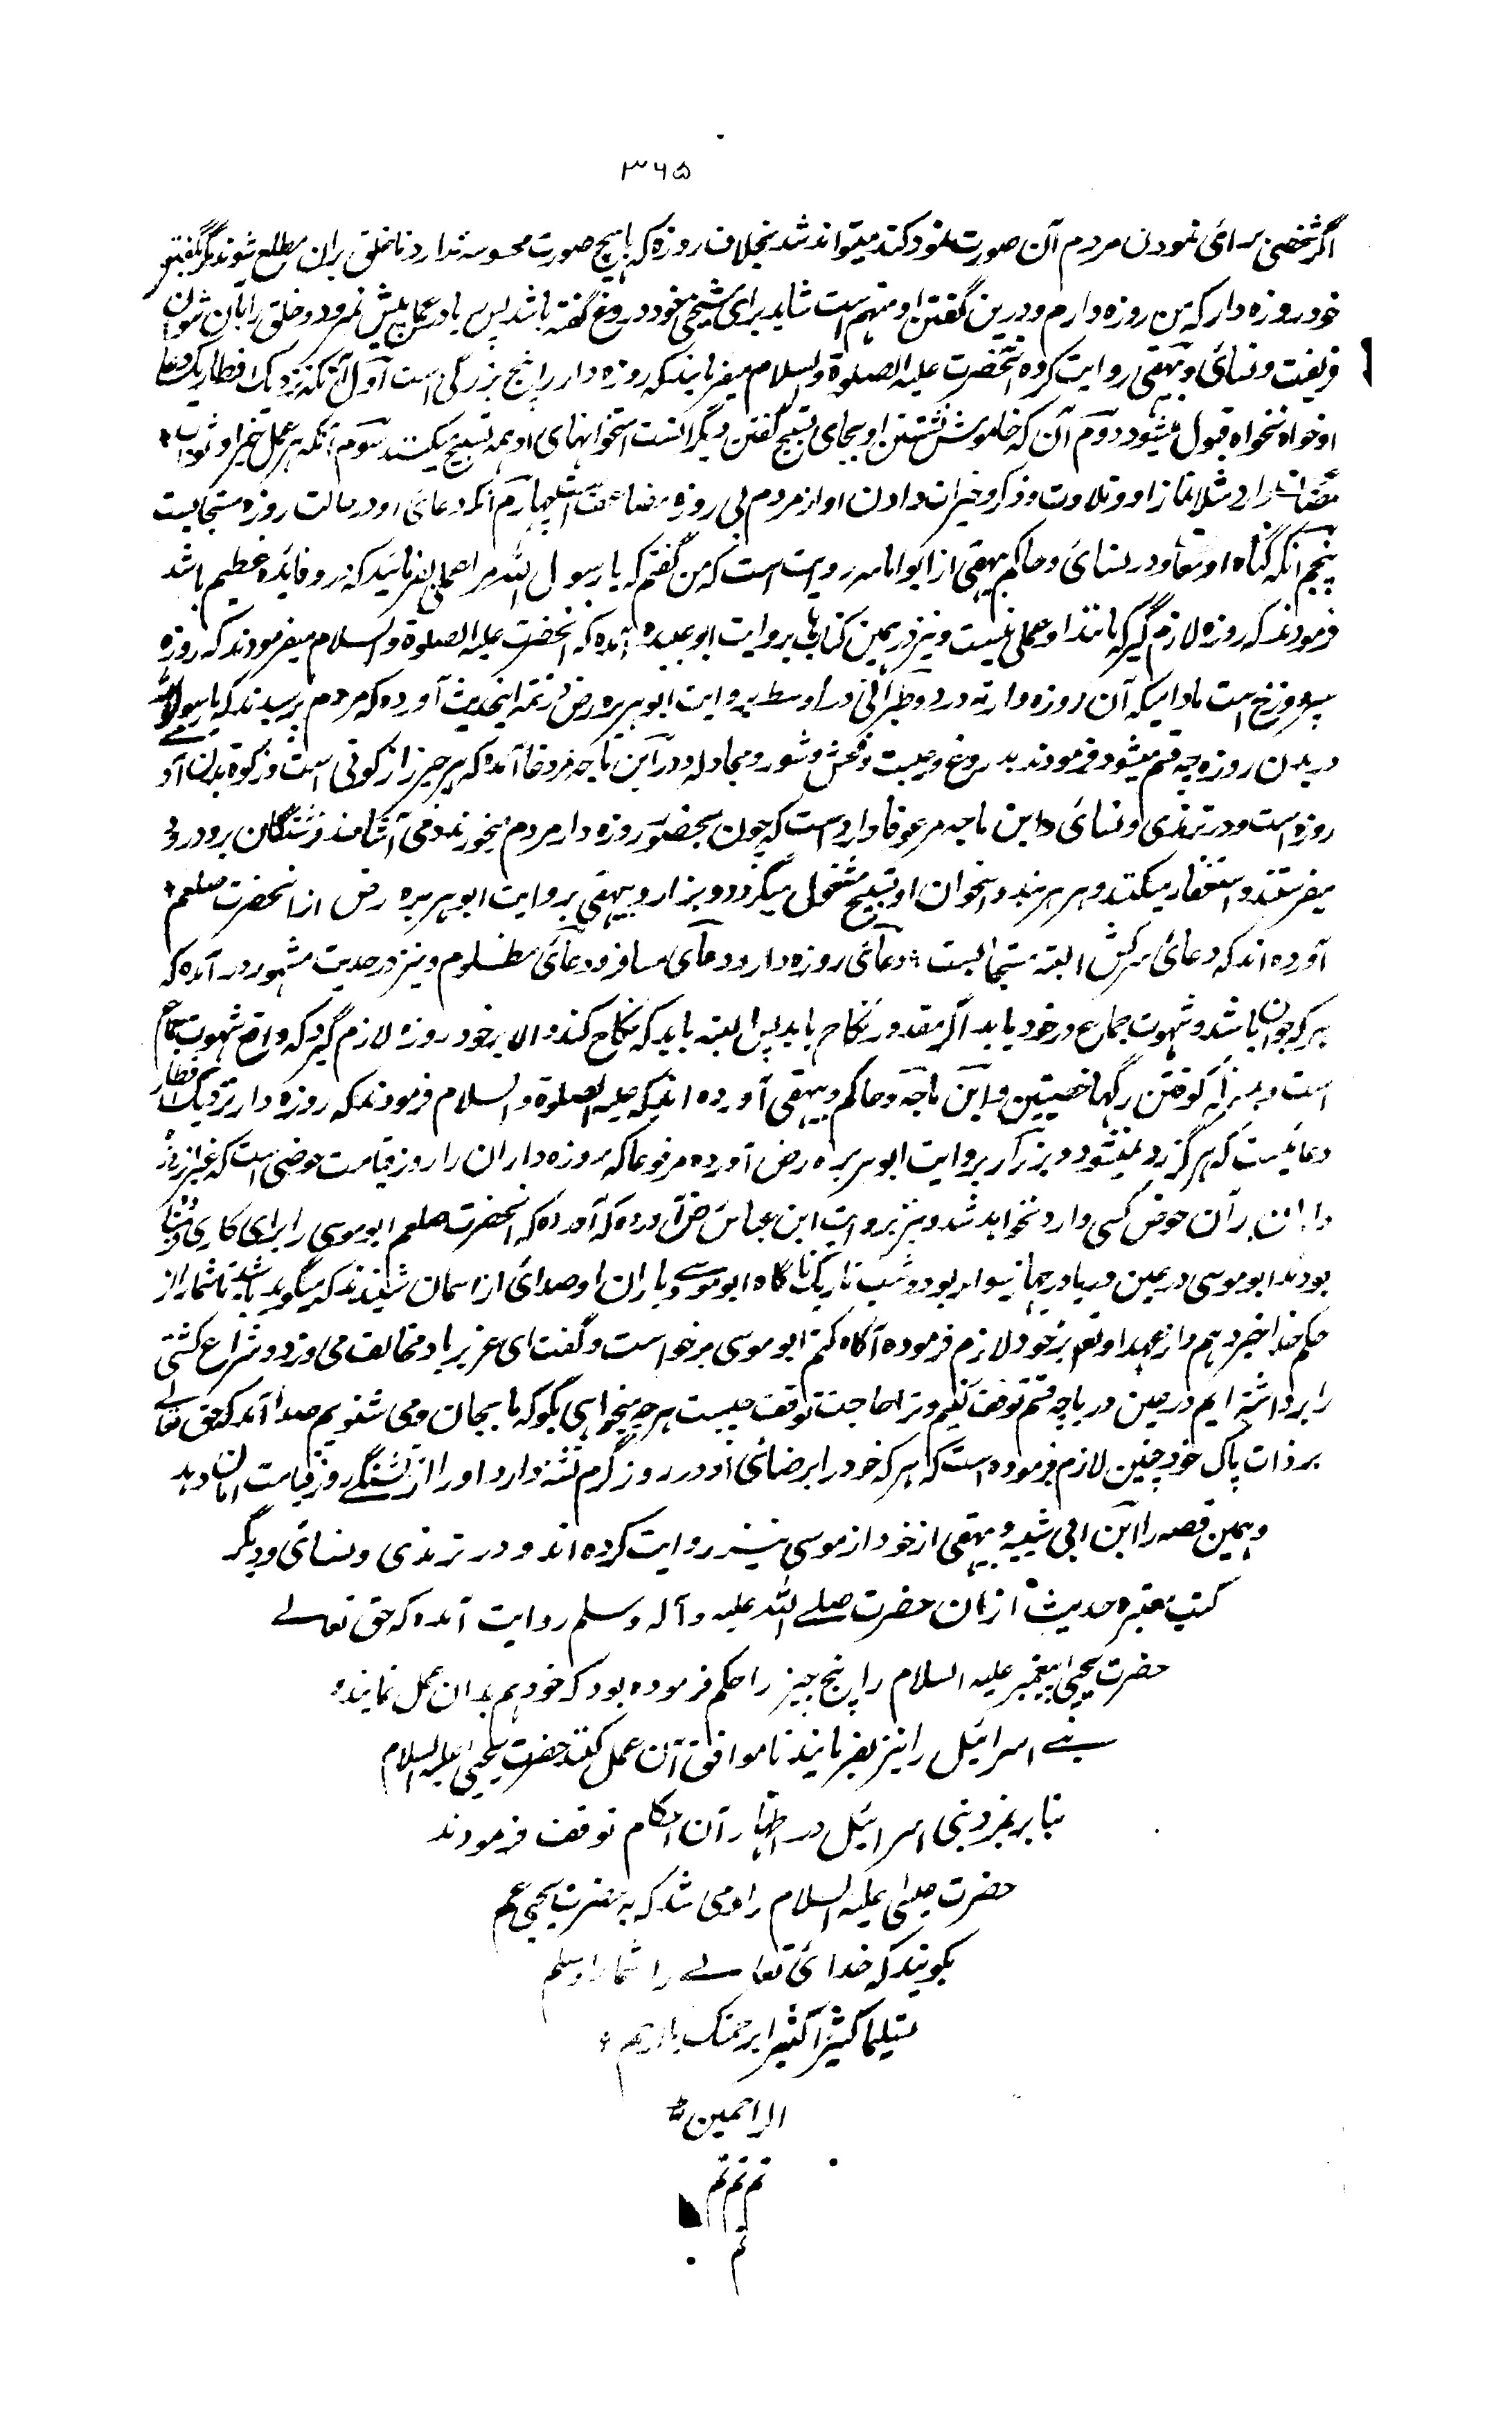 ۳۶۵
اگر شخصی برائ نمودن مردم آن صورت بخود کند میتواند شد بخلاف روزه که هیچ صورت محسوسه ندارد تا خلق بران مطلع شوند مگر بگفتن
خود روزه دار که من روزه دارم و درین گفتن او متهم است شاید برای شیخی خود دروغ گفته باشد پس با در خلق را بآن توان
فریفت و نسائی و بیهقی روایت کرده آنحضرت علیه الصلوة والسلام میفرمایند که روزه دار را پنج بزرگی است اول آنکه نزدیک افطار یک دعا
او خواه نخواه قبول میشود دوم آن که خاموش نشستن او بجای تسبیح گفتن دیگرانست استخوانهای او همه تسبیح میکنند سوم آنکه هر عمل خیر او ثواب
مضاعف دارد مثلا نماز او و تلاوت و ذکر و خیرات دادن او از مردم بی روزه مضاعف است چهارم آنکه دعائ او در حالت روزه مستجابست
پنجم آنکه گناه او معاف و در نسائ و حاکم و بیهقی از ابو امامه روایت است که من گفتم که یا رسول الله مرا عملی بفرمائید که درو فائده عظیم باشد
فرمودند که روزه لازم گیر که مانند او عملی نیست و نیز در همین کتابها بروایت ابو عبیده آمده که آنحضرت علیه الصلوة والسلام میفرمودند که روزه
سپر دوزخ است مادامیکه آن روزه دار نه درد و طبرانی در اوسط بروایت ابو هریره رض تتمه اینحدیث آورده که مردم پرسیدند که یا رسول الله
دریدن روزه چه قسم میشود فرمودند بدروغ و غیبت و فحش و شور و مجادله و در ابن ماجه مرفوعا آمده که هر چیز را زکوتی است و زکوة بدن آدمی
روزه است و در ترمذی و نسائ و ابن ماجه مرفوعا وارد است که چون بحضور روزه دار مردم میخورند و می آشامند فرشتگان برو درود
میفرستند و استغفار میکنند و هر هر بند و استخوان او تسبیح مشغول میگردد و بزار و بیهقی بروایت ابو هریره رض از انحضرت صلعم
آورده اند که دعائ سه کس البته مستجابست دعائ روزه دار و دعائ مسافر و دعائ مظلوم و نیز در حدیث مشهور در آمده که
هر که جوان باشد و شهوت جماع در خود یابد اگر مقدور نکاح یابد پس البته باید که نکاح کند والا بر خود روزه لازم گیرد که دافع شهوت جماع
است و بمنزله کوفتن رگهای خصیتین و ابن ماجه و حاکم و بیهقی آورده اند که علیه الصلوة والسلام فرمودند که روزه دار نزدیک افطار
دعائیست که هرگز رد نمیشود و بزار بروایت ابو هریره رض آورده مرفوعا که روزه داران را روز قیامت حوضی است که غیر از روزه
داران بر آن حوض کسی وارد نخواهد شد و نیز بروایت ابن عباس رض آورده که آمده که انحضرت صلعم ابو موسی را برای کاری فرستاده
بودند ابو موسی در عین دریا در جهاز سوار بود و شب تاریک ناگاه ابو موسی و یاران او صدائ از آسمان شنیدند که میگوید باشید تا شما را از
حکم خدا خبر دهم و از عهد او تعالی بر خود لازم فرموده آگاه کنم ابو موسی برخواست و گفت ای عزیز باد مخالف می وزد و شراع کشتی
را برداشته ایم در عین دریا چه قسم توقف کنیم و ترا حاجت توقف چیست هر چه میخواهی بگو که ما بیجان و می شنویم صدا آمد که حق تعالی
بر ذات پاک خود چنین لازم فرموده است که هر که خود را برضائی او در روز گرم تشنه دارد او را از تشنگی روز قیامت امان دهد
و همین قصه را ابن ابی شیبه و بیهقی از خود از موسی نیز روایت کرده اند و در ترمذی و نسائ و دیگر
کتب معتبره حدیث از ان حضرت صلے الله علیه و آله وسلم روایت آمده که حق تعالے
حضرت یحیی پیغمبر علیه السلام را پنج چیز را حکم فرموده بود که خود هم بدان عمل نمایند و
بنے اسرائیل را نیز بفرمایند تا موافق آن عمل کنند حضرت یحیی علیه السلام
بنابر تمرد بنی اسرائیل در اظهار آن احکام توقف فرمودند
حضرت عیسی علیه السلام را وحی شد که به حضرت یحیی عم
بگویند که خدائ تعالے
تسلیما کثیرا کثیرا برحمتک یا ارحم
الراحمین
تم تم تم
تم